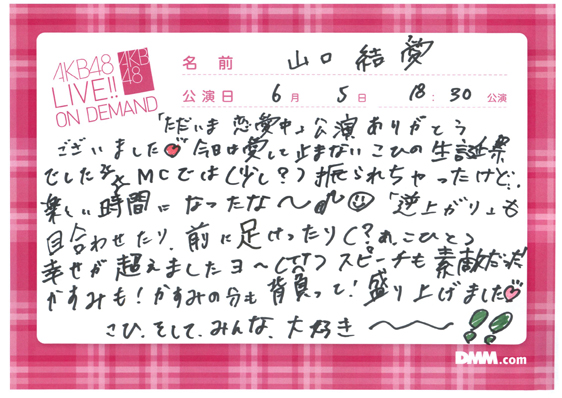 AKB48
LIVE!!
ON DEMAND
AKB
48
名前 山口 結愛
公演日 6月 5日 18:30 公演
「ただいま 恋愛中」公演 ありがとう
ございました 今日は愛して止まない こひの 生誕祭
でした MCでは (少し?) 振られちゃったけど、
楽しい 時間に なったな〜 「逆上がり」も
目合わせたり、前に 足けったり(?)
幸せが 超えました ヨ〜 スピーチも 素敵だった
かすみも!かすみの分も 背負って!盛り上げました
こひ、そして、みんな、大好き 〜〜!!
DMM.com